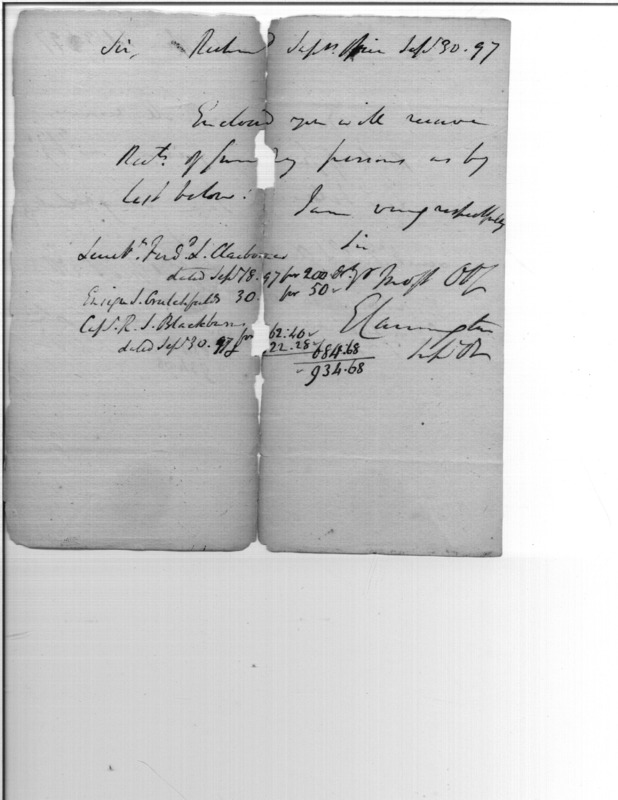 Sir, Richmd Supvrs office Sepr 30. 97
Enclosed you will receive
Rects. of sundry persons as by
list below:
I am very respectfully
Sir
Lieut. Ferdd. L. Claiborne
dated Sepr 18. 97 for 200 Yr Most Obt
Ensign J. Crutchfield 30. for 50
Capt. R. S. Blackburn
dated Sepr 30. 97 for 662.40
22.28 684.68
934.68
E Carrington